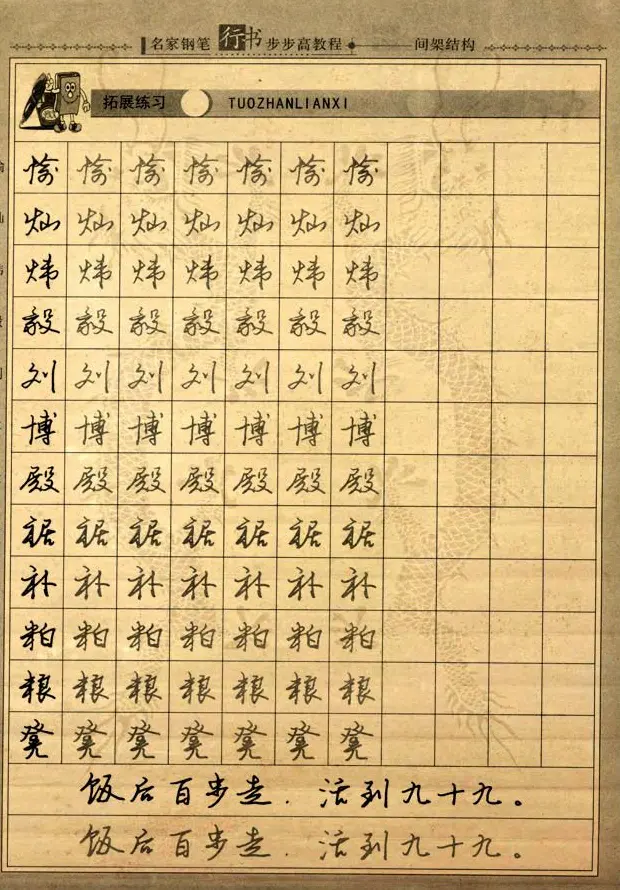 名家钢笔 行书 步步高教程 间架结构
拓展练习 TUOZHANLIANXI
愉 愉 愉 愉 愉 愉 愉
灿 灿 灿 灿 灿 灿 灿
炜 炜 炜 炜 炜 炜 炜
毅 毅 毅 毅 毅 毅 毅
刘 刘 刘 刘 刘 刘 刘
博 博 博 博 博 博 博
殿 殿 殿 殿 殿 殿 殿
裾 裾 裾 裾 裾 裾 裾
补 补 补 补 补 补 补
粕 粕 粕 粕 粕 粕 粕
粮 粮 粮 粮 粮 粮 粮
凳 凳 凳 凳 凳 凳 凳
饭后百步走．活到九十九。
饭后百步走．活到九十九。